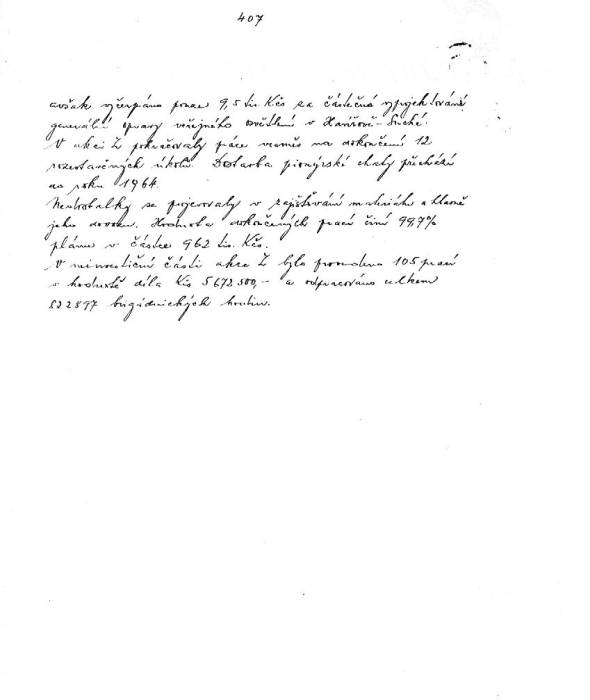 407
avšak vyčerpáno pouze 9,5 tis. Kčs za částečné vyprojektování
generální opravy veřejného osvětlení v Havířově-Suché.
V akci Z pokračovaly práce na dokončení 12
rozestavěných úkolů. Dostavba pionýrské chaty přechází
do roku 1964.
Nedostatky se projevovaly v zajišťování materiálu a hlavně
jeho dovozu. Hodnota dokončených prací činí 99,7%
plánu v částce 962 tis. Kčs.
V neinvestiční části akce Z bylo provedeno 105 prací
v hodnotě díla Kčs 5672.500,- a odpracováno celkem
522897 brigádnických hodin.